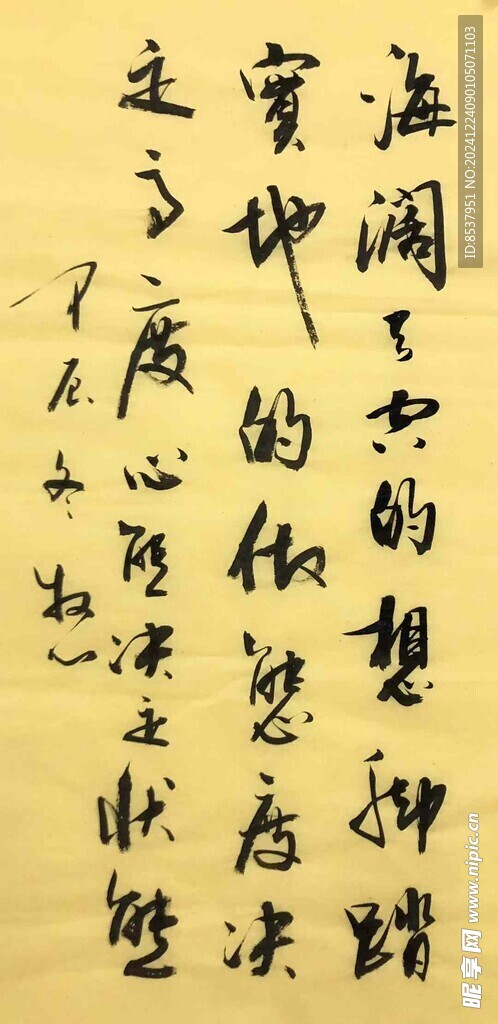 海阔天空的想脚踏
實地的做態度决
定高度心態决定狀態
甲辰冬牧心
ID:8537951 NO:20241224090105071103
昵享网 www.nipic.cn